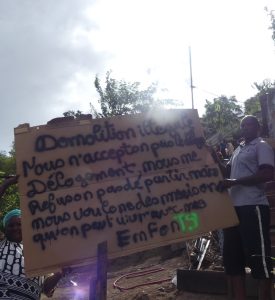 Demolition illegal
Nous n'acceptons pas le
Délogement, nous ne
Refuson pas de partir, mais
nous voulons des maisons
qu'on peut vivre avec nos
Enfonts